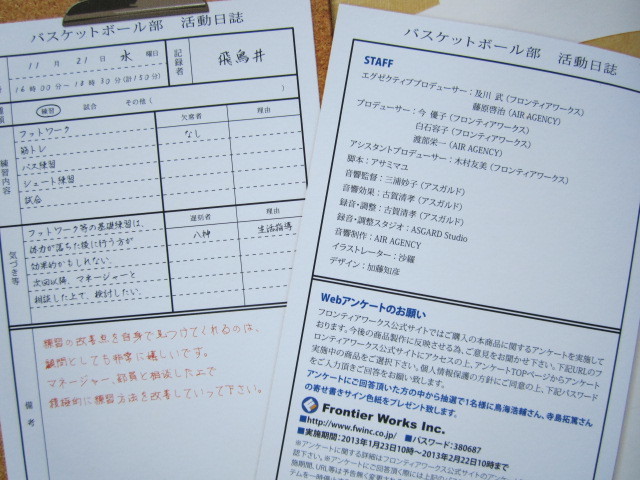 バスケットボール部 活動日誌
11 月 21 日 水 曜日
記録者
飛鳥井
16時00分～18時30分(計150分)
練習 試合 その他( )
練習内容
欠席者 理由
フットワーク
なし
筋トレ
パス練習
シュート練習
試合
気づき等
遅刻者 理由
八神 生活指導
フットワーク等の基礎練習は、
体力が落ちた後に行う方が
効果的かもしれない。
次回以降、マネージャーと
相談した上で、検討したい。
備考
練習の改善点を自身で見つけてくれるのは、
顧問としても非常に嬉しいです。
マネージャー、部員と相談した上で
積極的に練習方法を改善していって下さい。
バスケットボール部 活動日誌
STAFF
エグゼクティブプロデューサー：及川 武（フロンティアワークス）
藤原啓治（AIR AGENCY）
プロデューサー：今 優子（フロンティアワークス）
白石容子（フロンティアワークス）
渡部栄一（AIR AGENCY）
アシスタントプロデューサー：木村友美（フロンティアワークス）
脚本：アサミマユ
音響監督：三浦妙子（アスガルド）
音響効果：古賀清孝（アスガルド）
録音・調整：古賀清孝（アスガルド）
録音・調整スタジオ：ASGARD Studio
音響制作：AIR AGENCY
イラストレーター：沙羅
デザイン：加藤知彦
Webアンケートのお願い
フロンティアワークス公式サイトではご購入の本商品に関するアンケートを実施して
おります。今後の商品製作に反映させる為、ご意見をお聞かせ下さい。下記URLのフ
ロンティアワークス公式サイトにアクセスの上、アンケートTOPページからアンケート
実施中の商品をご選択下さい。個人情報保護の方針にご同意の上、下記パスワード
をご入力頂きご回答をお願い致します。
アンケートにご回答頂いた方の中から抽選で1名様に鳥海浩輔さん、寺島拓篤さん
の寄せ書きサイン色紙をプレゼント致します。
Frontier Works Inc.
■http://www.fwinc.co.jp/ ■パスワード：380687
■実施期間：2013年1月23日10時～2013年2月22日10時まで
※アンケートに関する詳細はフロンティアワークス公式サイトのアンケート